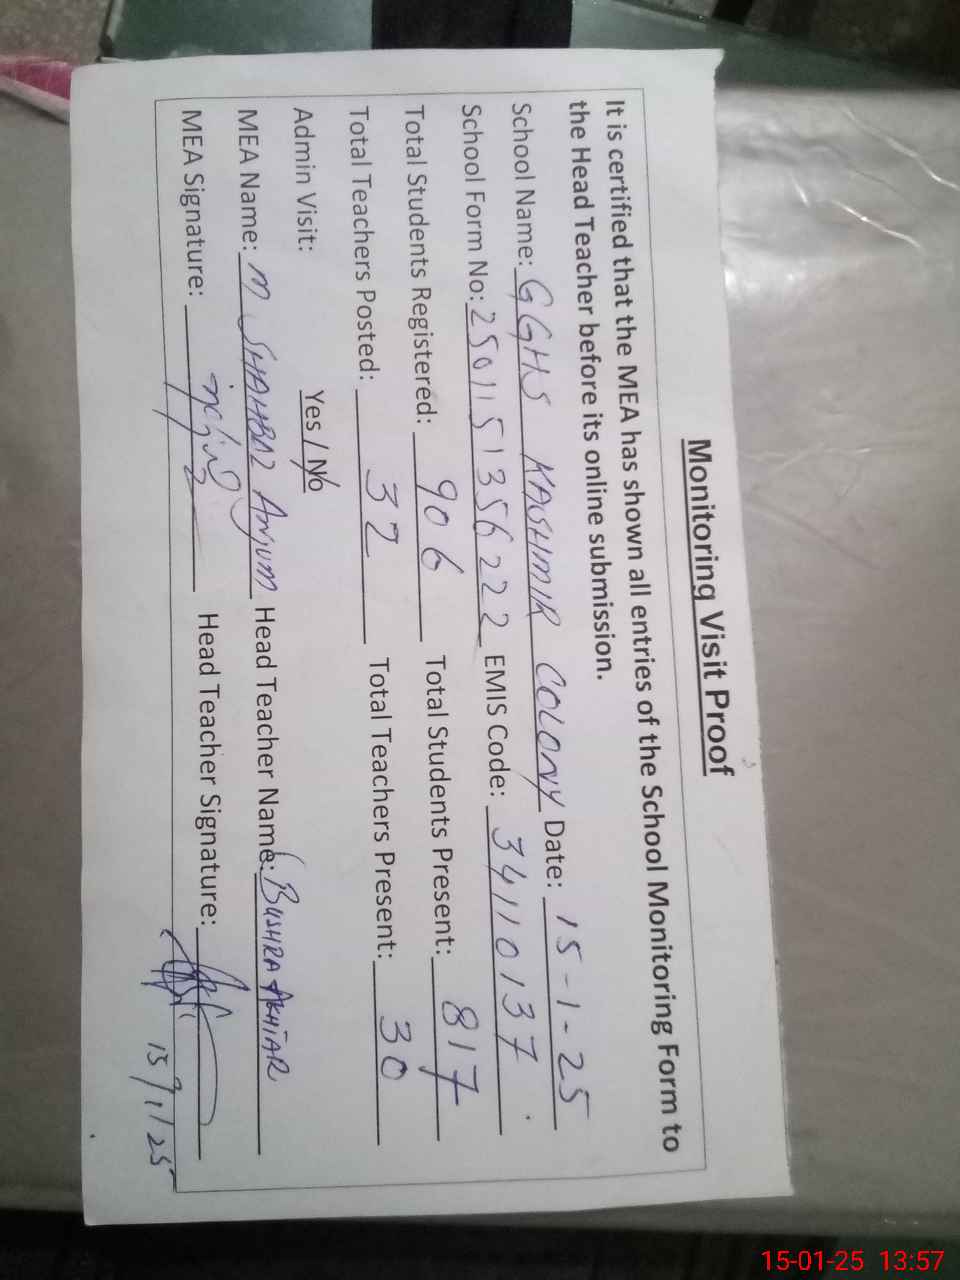 Monitoring Visit Proof
It is certified that the MEA has shown all entries of the School Monitoring Form to
the Head Teacher before its online submission.
School Name: GGHS KASHMIR COLONY Date: 15-1-25
School Form No: 2501151356222 EMIS Code: 34110137
Total Students Registered: 906 Total Students Present: 817
Total Teachers Posted: 32 Total Teachers Present: 30
Admin Visit: Yes / No
MEA Name: M SHAHBAZ Anjum Head Teacher Name: BUSHRA AKHTAR
MEA Signature: Head Teacher Signature:
15/1/25
15-01-25 13:57